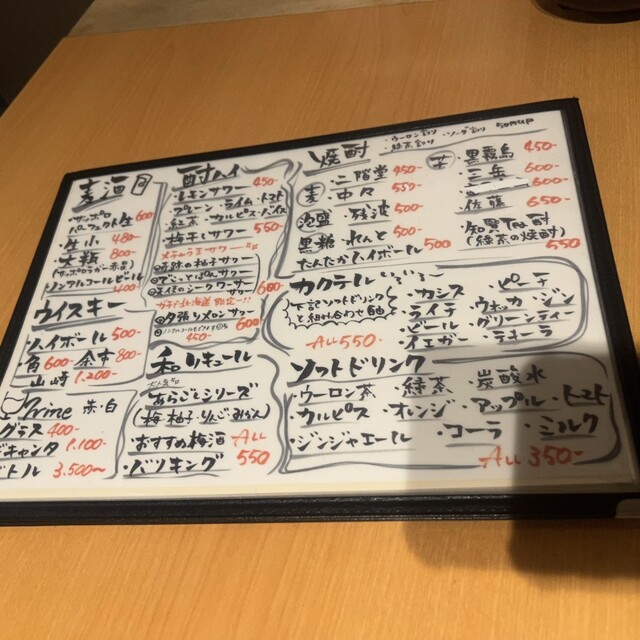 麦酒
・サッポロ
パーフェクト生 600
・生小 480-
・大瓶 800-
(サッポロラガー赤星)
ノンアルコールビール
400-
ウイスキー
ハイボール 500-
・角 600- 余市 800-
山崎 1,200-
Wine 赤・白
グラス 400-
デキャンタ 1,100-
ボトル 3,500〜
酎ハイ
・レモンサワー 450-
・プレーン・ライム・トマト
・紅茶・カルピス・バイス
・梅干しサワー 550-
サワー 600-
夕張りメロンサワー 600-
450-
和リキュール
あらごしシリーズ
(梅・柚子・りんご・みかん)
・おすすめ梅酒 ALL
・バリキング 550
焼酎
・ウーロン割り ・ソーダ割り 50円UP
・緑茶割り
麦 ・二階堂 450-
・中々 550-
泡盛 ・残波 500-
黒糖・れんと 500-
たんたかハイボール 500
芋 ・黒霧島 450-
・三岳 600-
600-
・佐藤 650-
・知覧Tea酎
(緑茶の焼酎) 550
カクテル いろいろ
下記ソフトドリンク
と組み合わせ自由
ALL 550-
・カシス ・ピーチ
・ライチ ・ウォッカ・ジン
・ビール ・グリーンティー
・イエガー ・テキーラ
ソフトドリンク
・ウーロン茶 ・緑茶 ・炭酸水
・カルピス ・オレンジ ・アップル ・トマト
・ジンジャエール ・コーラ ・ミルク
ALL 350-